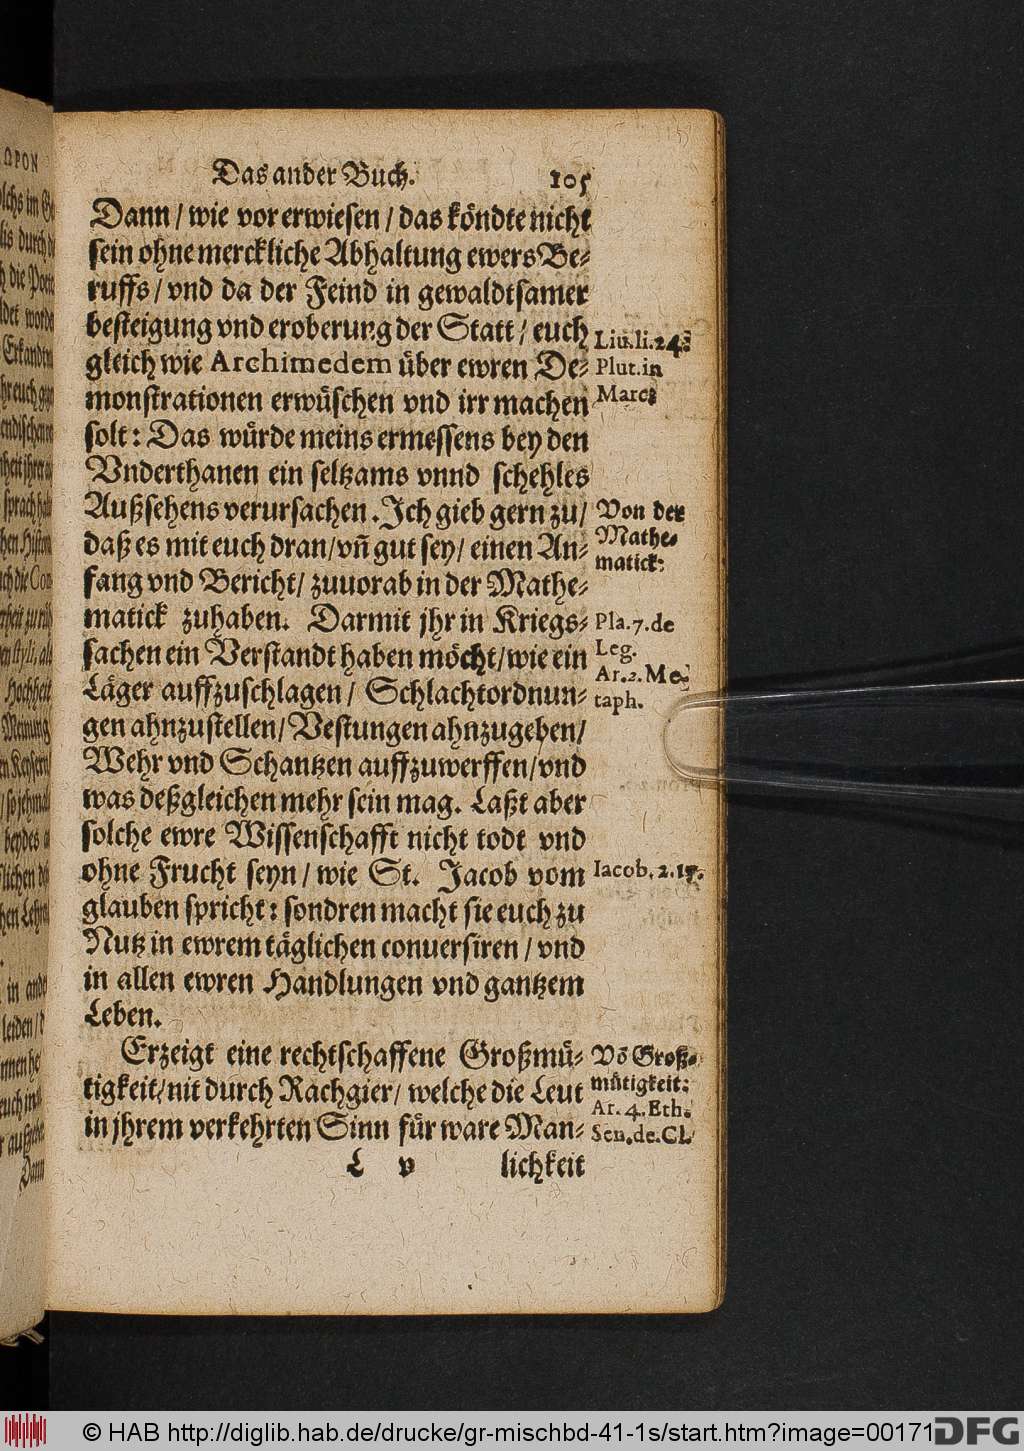 Das ander Buch. 105
Dann / wie vor erwiesen / das köndte nicht
sein ohne merckliche Abhaltung ewers Be-
ruffs / vnd da der Feind in gewaldtsamer
besteigung vnd eroberung der Statt / euch
gleich wie Archimedem über ewren De-
monstrationen erwüschen vnd irr machen
solt: Das würde meins ermessens bey den
Vnderthanen ein seltzams vnnd schehles
Außsehens verursachen. Ich gieb gern zu /
daß es mit euch dran / vñ gut sey / einen An-
fang vnd Bericht / zuuorab in der Mathe-
matick zuhaben. Darmit jhr in Kriegs-
sachen ein Verstandt haben möcht / wie ein
Läger auffzuschlagen / Schlachtordnun-
gen ahnzustellen / Vestungen ahnzugeben /
Wehr vnd Schantzen auffzuwerffen / vnd
was deßgleichen mehr sein mag. Laßt aber
solche ewre Wissenschafft nicht todt vnd
ohne Frucht seyn / wie St. Jacob vom
glauben spricht: sondren macht sie euch zu
Nutz in ewrem täglichen conuersiren / vnd
in allen ewren Handlungen vnd gantzem
Leben.
Erzeigt eine rechtschaffene Großmü-
tigkeit / nit durch Rachgier / welche die Leut
in jhrem verkehrten Sinn für ware Man-
L v lichkeit
Liu.li.24.
Plut.in
Marc.
Von der
Mathe-
matick:
Pla.7.de
Leg.
Ar.2.Me-
taph.
Iacob.2.17.
Võ Groß-
mütigkeit:
Ar.4.Eth.
Sen.de.Cl.
ΩΡΟΝ
Dann
© HAB http://diglib.hab.de/drucke/gr-mischbd-41-1s/start.htm?image=00171
DFG